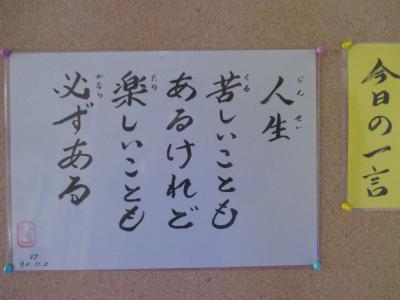 今日の一言
人生
じんせい
苦しいことも
くる
あるけれど
楽しいことも
たの
必ずある
かなら